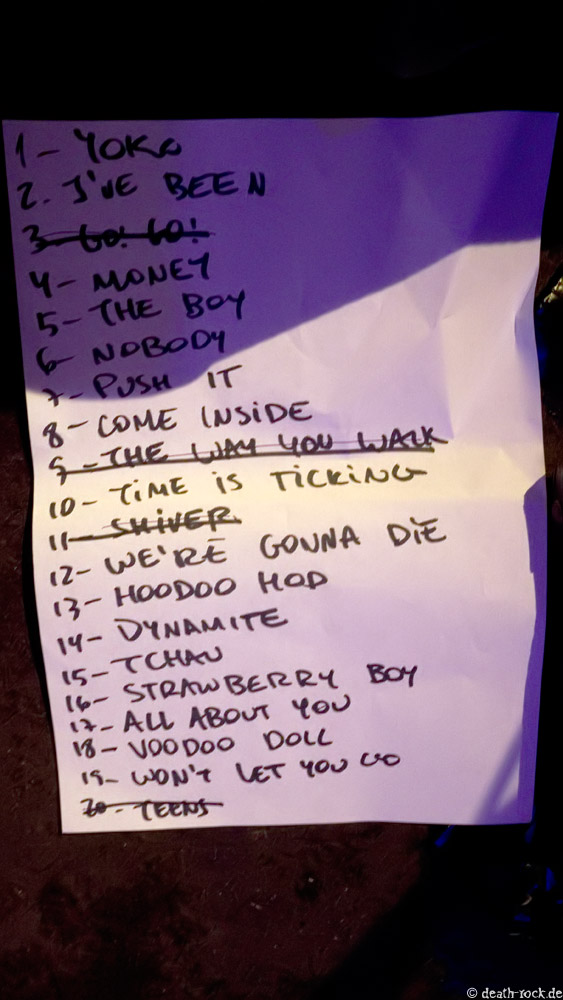 1 - YOKO
2. I'VE BEEN
3 - GO! GO!
4 - MONEY
5 - THE BOY
6 - NOBODY
7 - PUSH IT
8 - COME INSIDE
9 - THE WAY YOU WALK
10 - TIME IS TICKING
11 - SHIVER
12 - WE'RE GONNA DIE
13 - HOODOO MOD
14 - DYNAMITE
15 - TCHAU
16 - STRAWBERRY BOY
17 - ALL ABOUT YOU
18 - VOODOO DOLL
19 - WON'T LET YOU GO
20 - TEENS
© death-rock.de